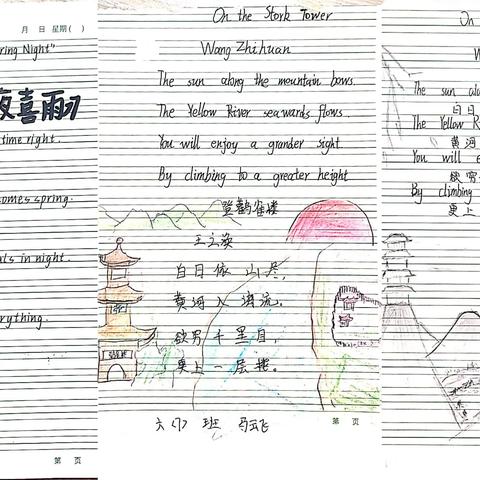 月 日 星期( )
ring Night"
夜喜雨
time right.
comes spring.
ls in night.
rything.
第 页
On the Stork Tower
Wang Zhihuan
The sun along the mountain bows.
The Yellow River seawards flows.
You will enjoy a grander sight
By climbing to a greater height
登鹳雀楼
王之涣
白日依山尽,
黄河入海流。
欲穷千里目,
更上一层楼。
班 马飞
第 页
On
The sun alo
白日
The Yellow R
黄河
You will e
欲穷
By climbing
更上